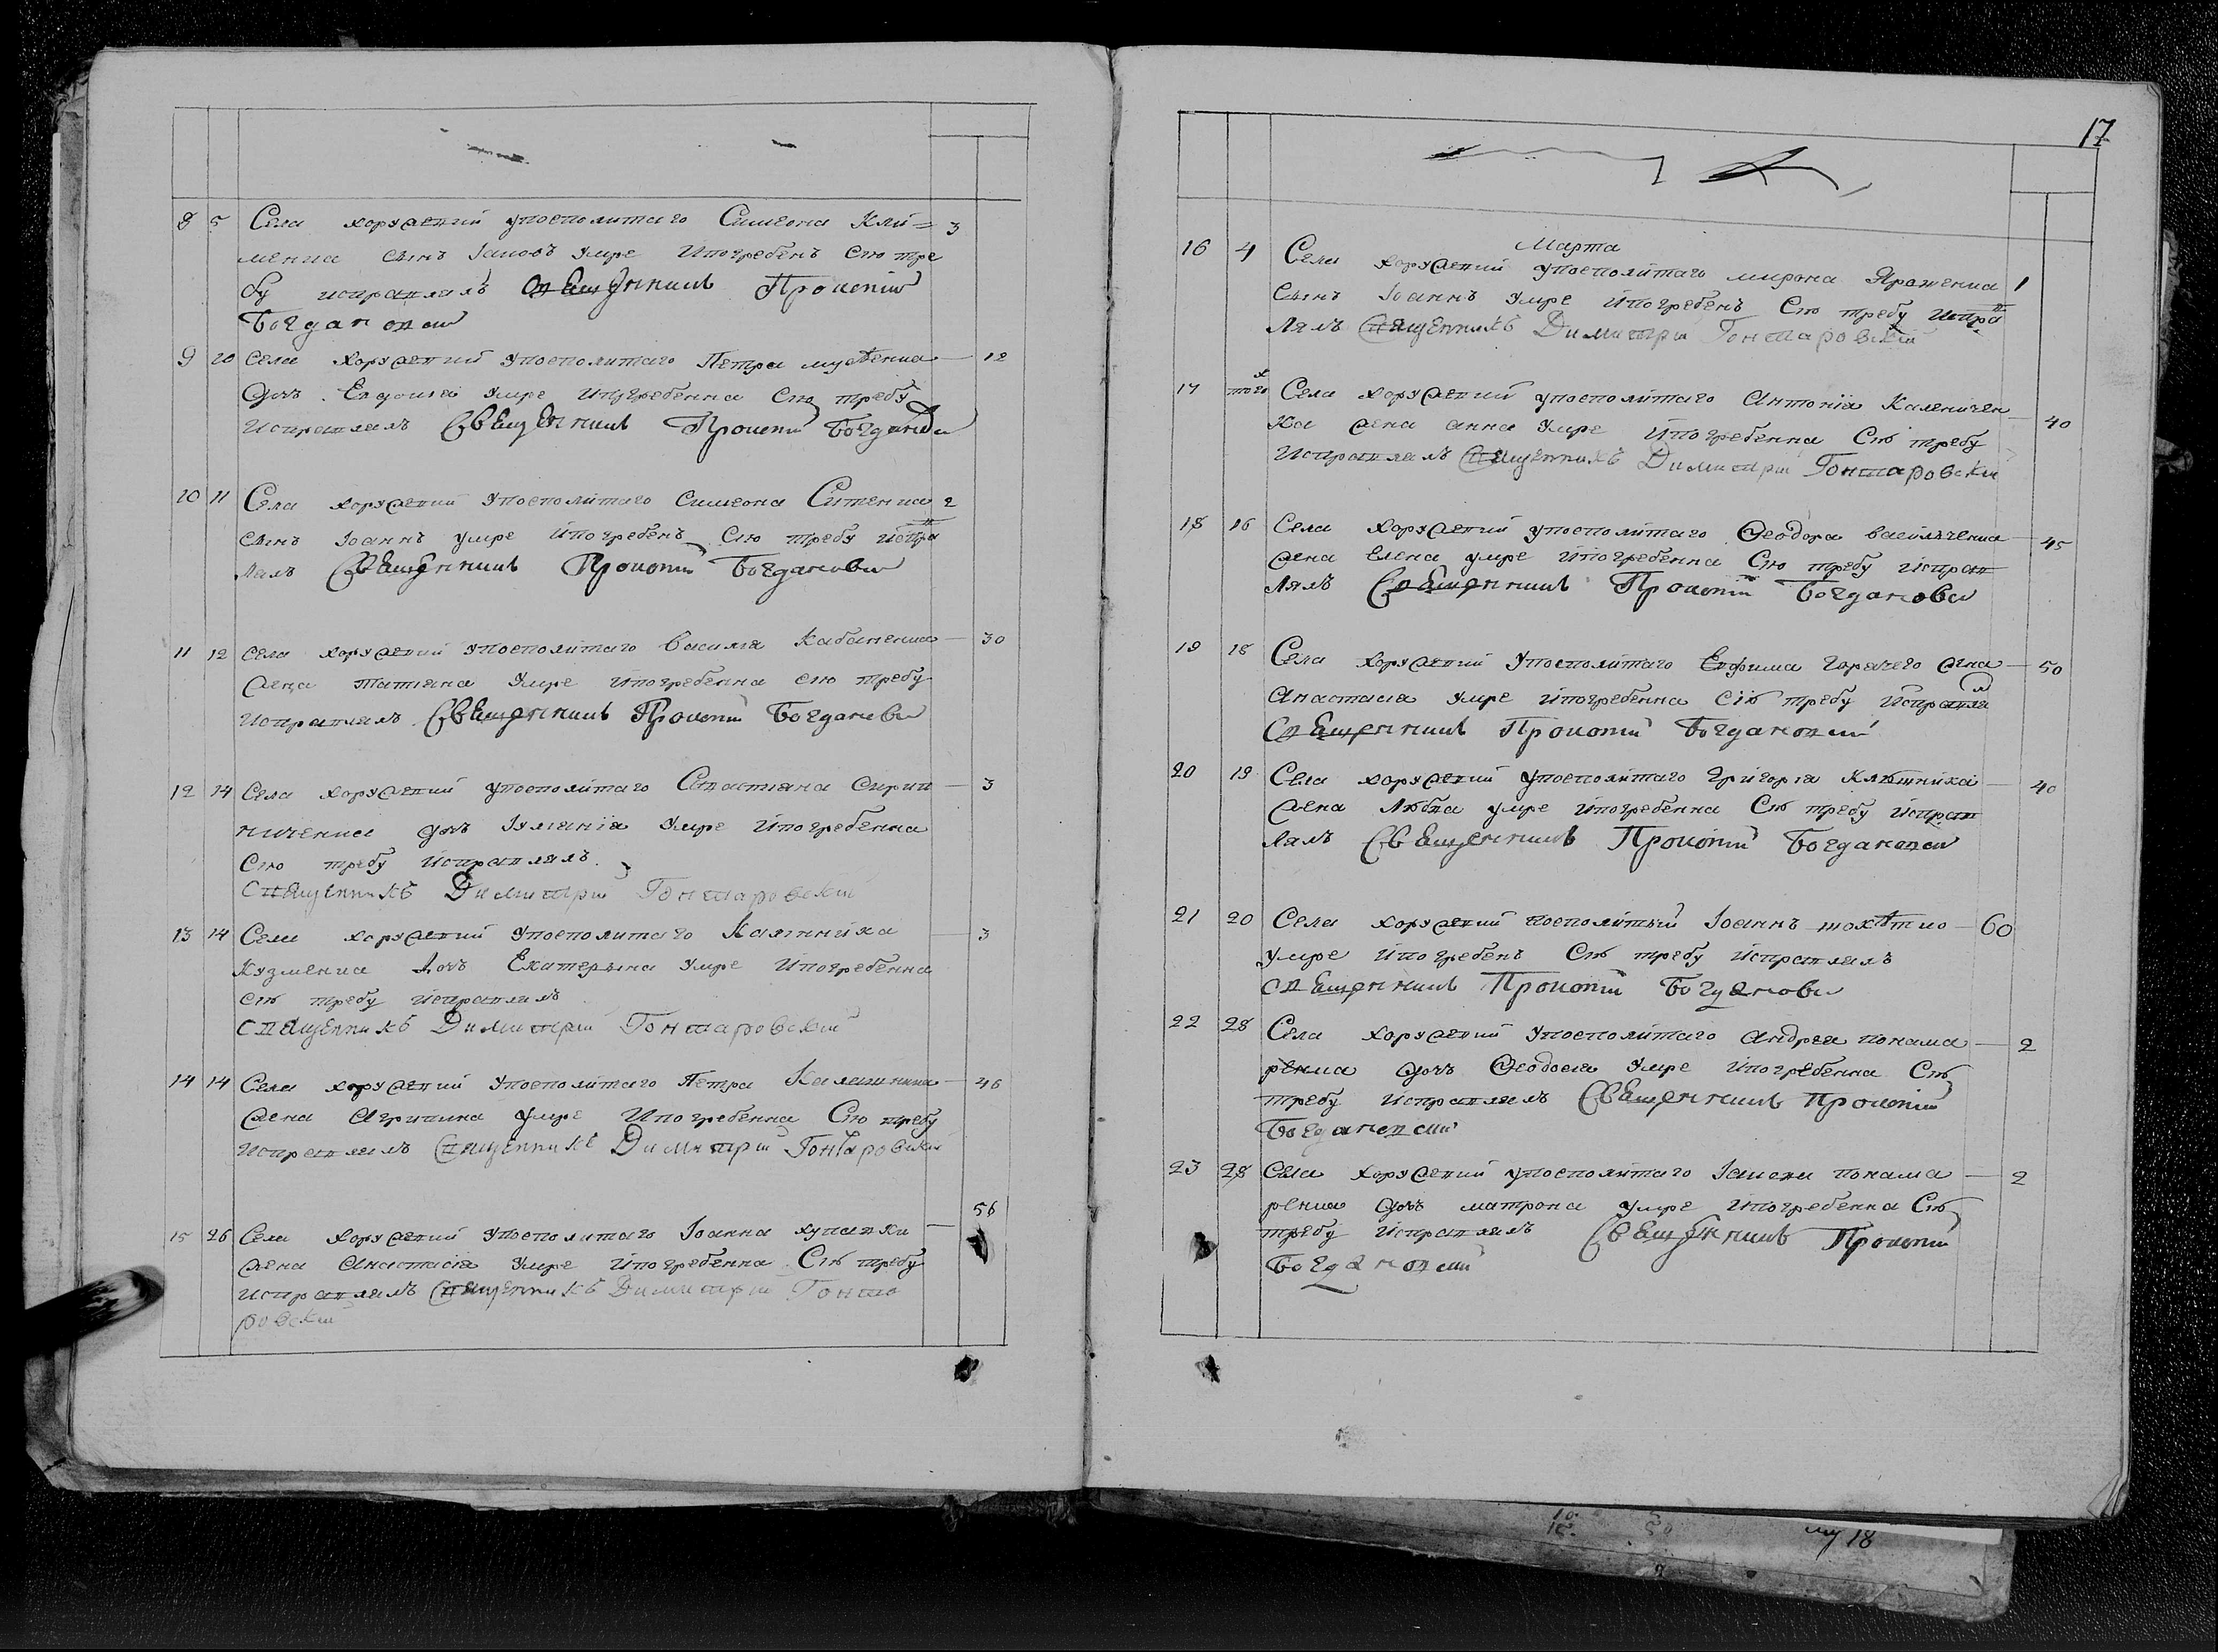 8 5 Села хоружевки упосполитаго Симеона Кли= 3
менка сынъ Іаковъ умре и погребенъ сію тре
бу исправлялъ священникъ Прокопій
Богдановски
9 20 Села хоружевки упосполитаго Петра — 12
дочъ Евдокія умре и погребенна сію требу
исправлялъ Священникъ Прокопи Богданови
10 11 Села хоружевки упосполитаго симеона Ситенка 2
сынъ Іоаннъ умре и погребенъ сію требу исправ
лялъ Священникъ Прокопи Богданови
11 12 Села хоружевки упосполитаго василія Кабаненка — 30
жена татіана умре и погребенна сію требу
исправлялъ Священникъ Прокопи Богданови
12 14 Села хоружевки упосполитаго Савастіана — 3
дочъ Іуліанія умре и погребенна
сію требу исправлялъ
священникъ Димитрій Гонтаровскій
13 14 Села хоружевки упосполитаго Калинника — 3
Кузменка дочъ Екатерына умре и погребенна
сію требу исправлялъ
священникъ Димитрій Гонтаровскій
14 14 Села хоружевки упосполитаго Петра — 46
жена Агрипина умре и погребенна Сію требу
исправлялъ Священникъ Димитрій Гонтаровски
56
15 26 Села хоружевки упосполитаго Іоанна —
жена Анастасія умре и погребенна Сію требу
исправлялъ Священникъ Димитрій Гонта
ровски
17
Марта
16 4 Села хоружевки упосполитаго мирона 1
сынъ Іоаннъ умре и погребенъ Сію требу исправ
лялъ Священникъ Димитри Гонтаровскій
17 тогож Села хоружевки упосполитаго Антонія Каленичен 40
ка жена анна умре и погребенна Сію требу
исправлялъ Священникъ Димитри Гонтаровски
18 16 Села хоружевки упосполитаго Феодора василченка — 45
жена Елена умре и погребенна Сію требу исправ
лялъ Священникъ Прокопи Богданови
19 18 Села хоружевки упосполитаго Евфима Горячего жена — 50
Анастасія умре и погребенна сію требу исправлял
Священникъ Прокопи Богдановски
20 19 Села хоружевки упосполитаго григорія — 40
жена Любва умре и погребенна Сію требу исправ
лялъ Священникъ Прокопи Богдановски
21 20 Села хоружевки посполитый Іоаннъ — 60
умре и погребенъ Сію требу исправлялъ
священникъ Прокопи Богданови
22 28 Села хоружевки упосполитаго андрея понама — 2
ренка дочъ Феодосія умре и погребенна Сію
требу исправлялъ Священникъ Прокопи
Богдановски
23 28 Села хоружевки упосполитаго Іакова понама — 2
ренка дочъ матрона умре и погребенна Сію
требу исправлялъ Священникъ Прокопи
Богдановски
18